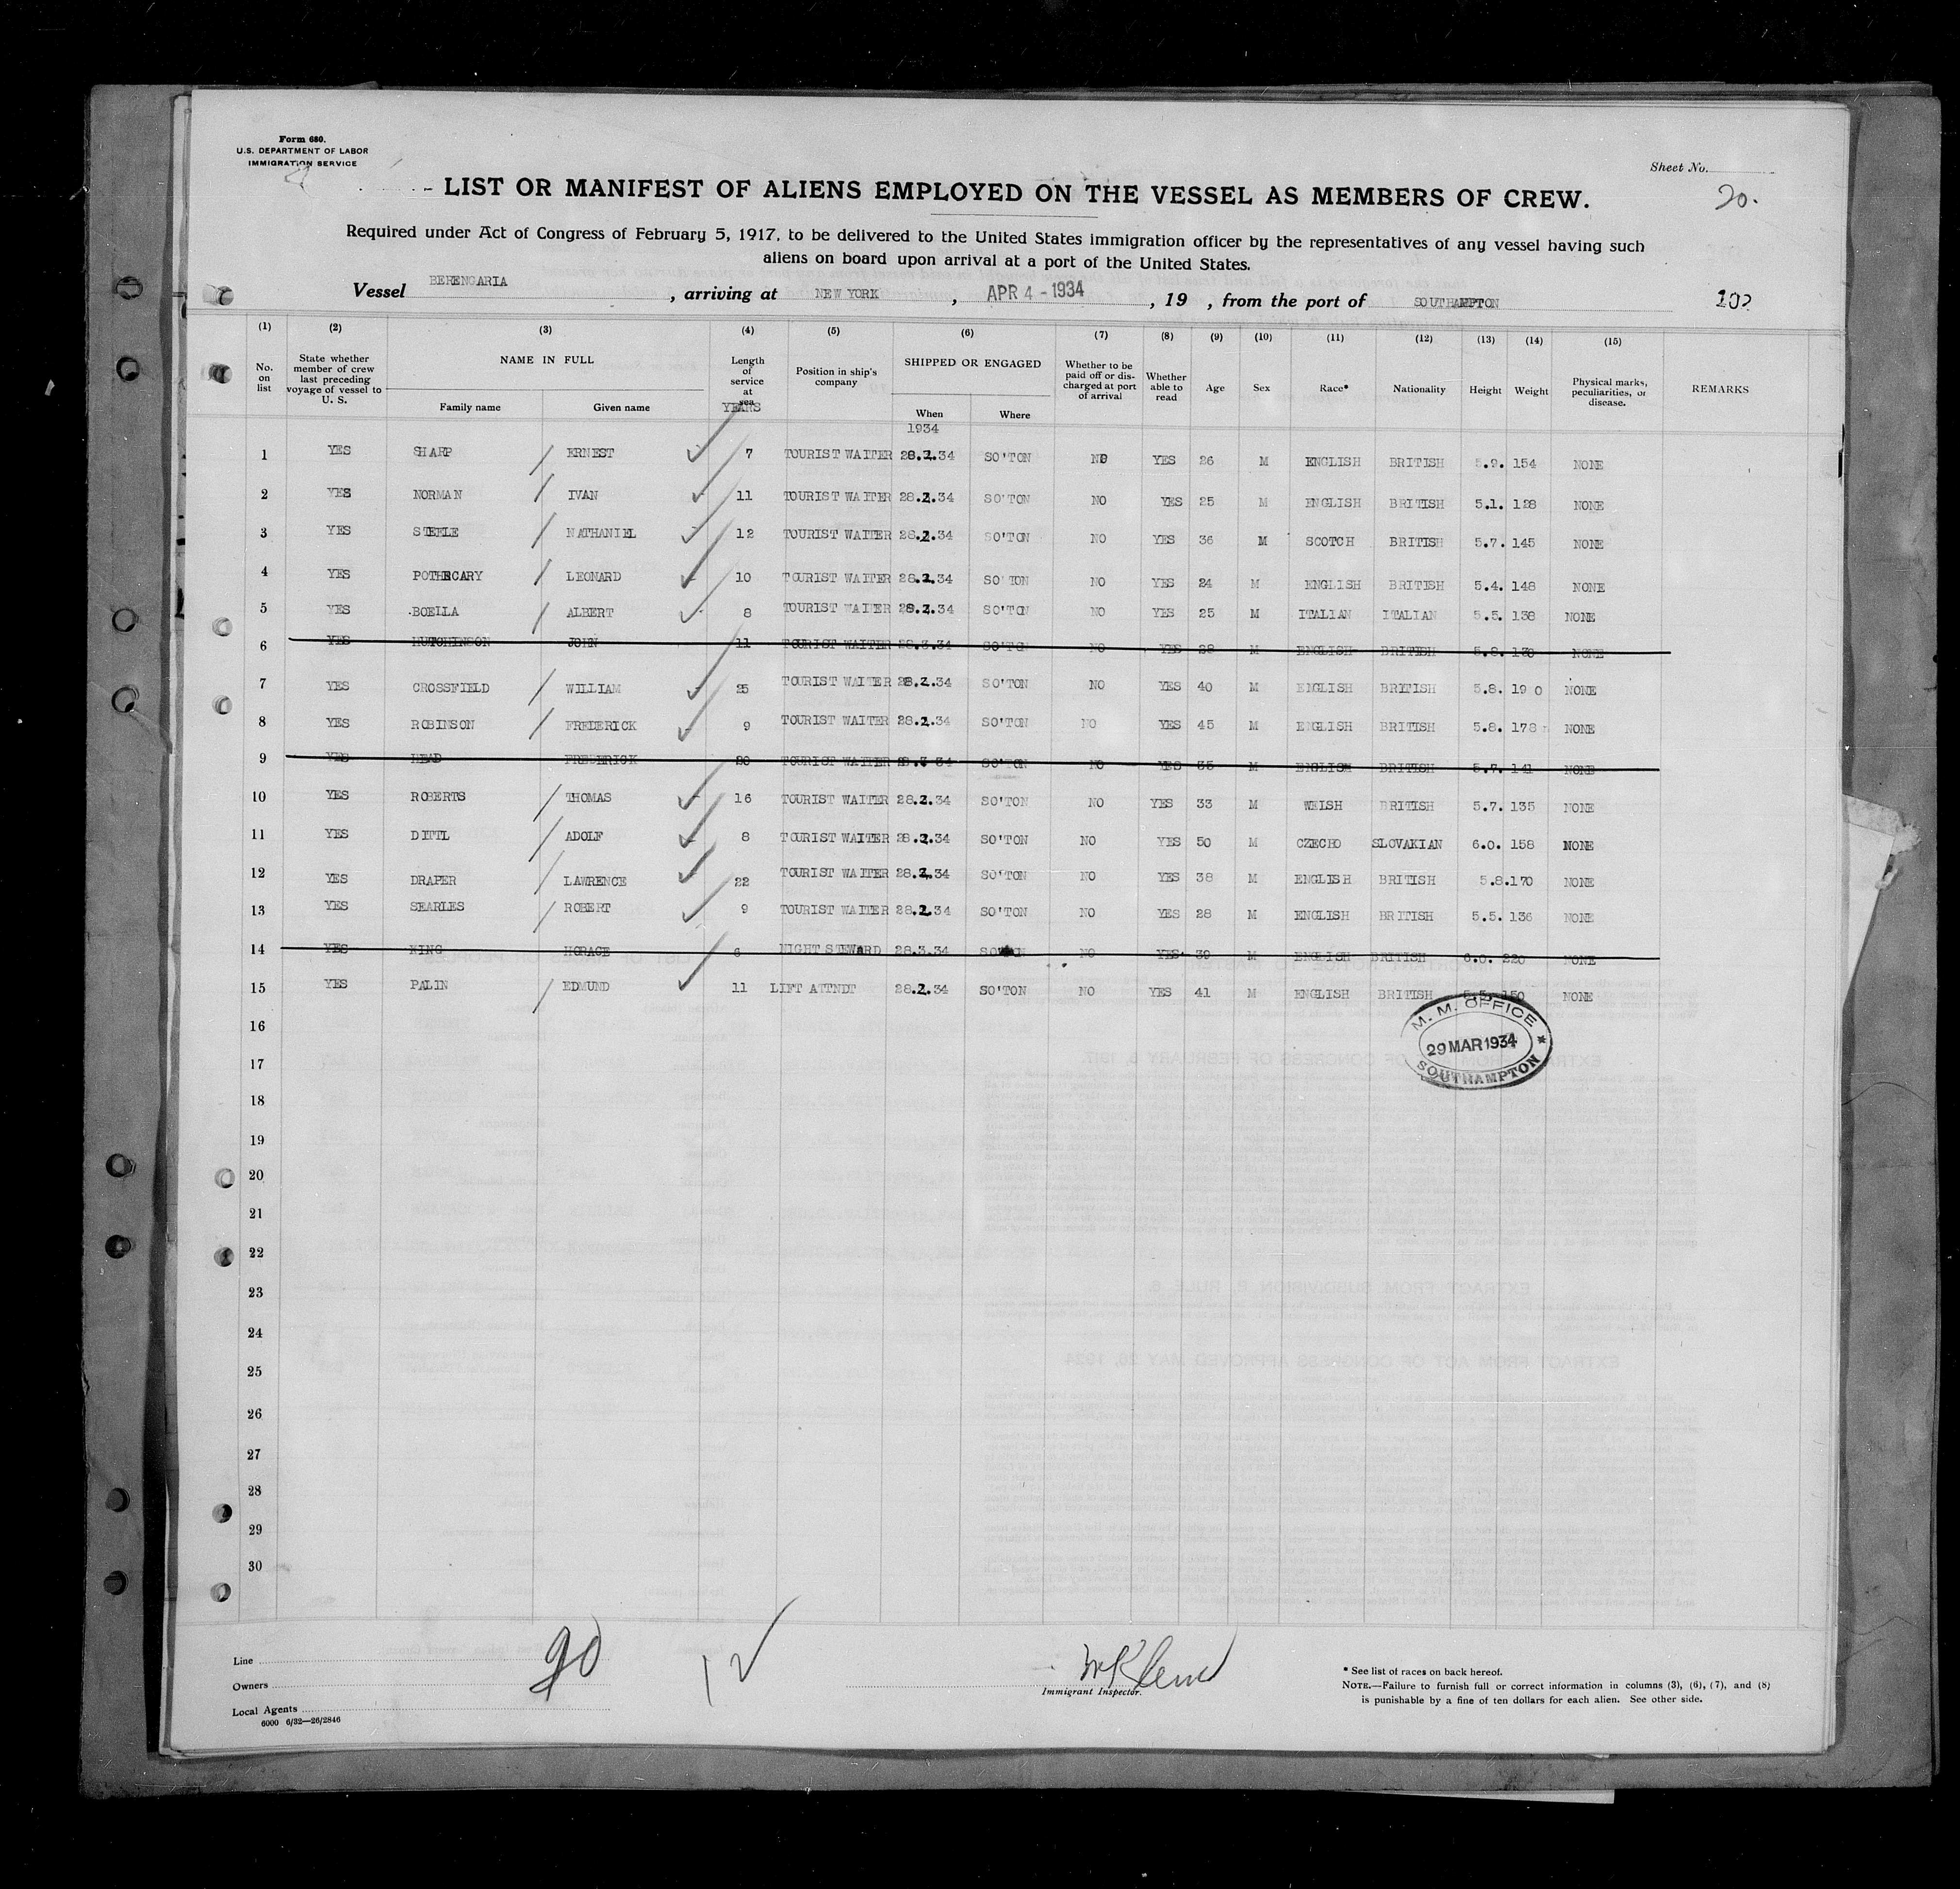 Form 680.
U.S. DEPARTMENT OF LABOR
IMMIGRATION SERVICE
Sheet No.
20.
LIST OR MANIFEST OF ALIENS EMPLOYED ON THE VESSEL AS MEMBERS OF CREW.
Required under Act of Congress of February 5, 1917, to be delivered to the United States immigration officer by the representatives of any vessel having such
aliens on board upon arrival at a port of the United States.
Vessel BERENGARIA, arriving at NEW YORK, APR 4 - 1934, 19 , from the port of SOUTHAMPTON
(1) (2) (3) (4) (5) (6) (7) (8) (9) (10) (11) (12) (13) (14) (15)
No. on list State whether member of crew last preceding voyage of vessel to U. S. NAME IN FULL Family name Given name Length of service at sea YEARS Position in ship's company SHIPPED OR ENGAGED When Where Whether to be paid off or discharged at port of arrival Whether able to read Age Sex Race* Nationality Height Weight Physical marks, peculiarities, or disease. REMARKS
1934
1 YES SHARP ERNEST 7 TOURIST WAITER 28.2.34 SO'TON NO YES 26 M ENGLISH BRITISH 5.9. 154 NONE
2 YES NORMAN IVAN 11 TOURIST WAITER 28.2.34 SO'TON NO YES 25 M ENGLISH BRITISH 5.1. 128 NONE
3 YES STEELE NATHANIEL 12 TOURIST WAITER 28.2.34 SO'TON NO YES 36 M SCOTCH BRITISH 5.7. 145 NONE
4 YES POTHECARY LEONARD 10 TOURIST WAITER 28.2.34 SO'TON NO YES 24 M ENGLISH BRITISH 5.4. 148 NONE
5 YES BOELLA ALBERT 8 TOURIST WAITER 28.2.34 SO'TON NO YES 25 M ITALIAN ITALIAN 5.5. 138 NONE
6 YES HUTCHINSON JOHN 11 TOURIST WAITER 28.3.34 SO'TON NO YES 28 M ENGLISH BRITISH 5.8. 130 NONE
7 YES CROSSFIELD WILLIAM 25 TOURIST WAITER 28.2.34 SO'TON NO YES 40 M ENGLISH BRITISH 5.8. 190 NONE
8 YES ROBINSON FREDERICK 9 TOURIST WAITER 28.2.34 SO'TON NO YES 45 M ENGLISH BRITISH 5.8. 178 NONE
9 YES HEAD FREDERICK 20 TOURIST WAITER 28.3.34 SO'TON NO YES 35 M ENGLISH BRITISH 5.7. 141 NONE
10 YES ROBERTS THOMAS 16 TOURIST WAITER 28.2.34 SO'TON NO YES 33 M WELSH BRITISH 5.7. 135 NONE
11 YES DITTL ADOLF 8 TOURIST WAITER 28.2.34 SO'TON NO YES 50 M CZECHO SLOVAKIAN 6.0. 158 NONE
12 YES DRAPER LAWRENCE 22 TOURIST WAITER 28.2.34 SO'TON NO YES 38 M ENGLISH BRITISH 5.8.170 NONE
13 YES SEARLES ROBERT 9 TOURIST WAITER 28.2.34 SO'TON NO YES 28 M ENGLISH BRITISH 5.5. 136 NONE
14 YES KING HORACE 6 NIGHT STEWARD 28.3.34 SO'TON NO YES 39 M ENGLISH BRITISH 6.0. 220 NONE
15 YES PALIN EDMUND 11 LIFT ATTNDT 28.2.34 SO'TON NO YES 41 M ENGLISH BRITISH 5.5. 150 NONE
M. M. OFFICE
29 MAR 1934
SOUTHAMPTON
16
17
18
19
20
21
22
23
24
25
26
27
28
29
30
Line
Owners
Local Agents
6000 6/32—26/2846
20
12
Immigrant Inspector.
* See list of races on back hereof.
NOTE.—Failure to furnish full or correct information in columns (3), (6), (7), and (8)
is punishable by a fine of ten dollars for each alien. See other side.